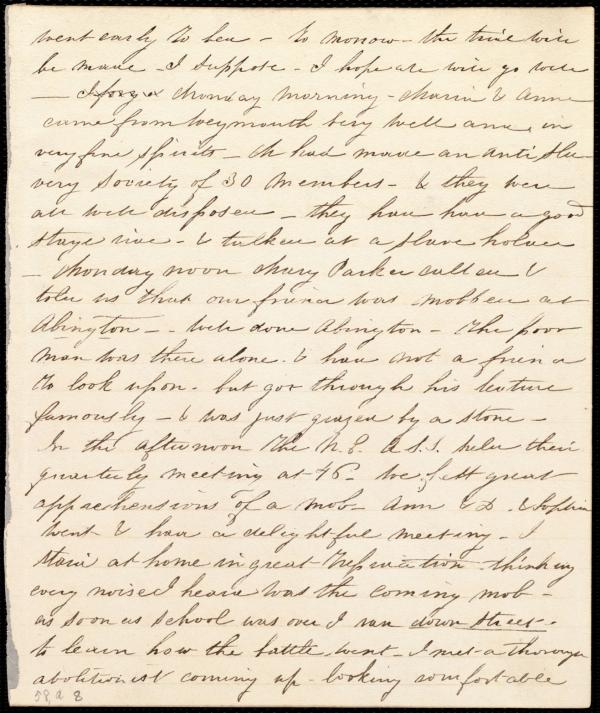 went early to bed - to morrow - the trial will
be made - I suppose - I hope all will go well
- Monday morning - Maria & Anne
came from Weymouth very well and in
very fine spirits - M had made an anti sla-
very Society of 30 members - & they were
all well disposed - they had had a good
stage ride - & talked at a slave holder
- Monday noon Mary Parker called &
told us that our friend was mobbed at
Abington - - Well done Abington - The poor
man was there alone & had not a friend
to look upon - but got through his lecture
famously - & was just grazed by a stone -
In the afternoon the N. E. A S. S. held their
quarterly meeting at 46 - We felt great
apprehensions of a mob - Ann & D. & Sophia
went & had a delightful meeting - I
staid at home in great trepidation - thinking
every noise I heard was the coming mob -
as soon as school was over I ran down street -
to learn how the battle went - I met a thorough
abolitionist coming up - looking comfortable
58, a 8